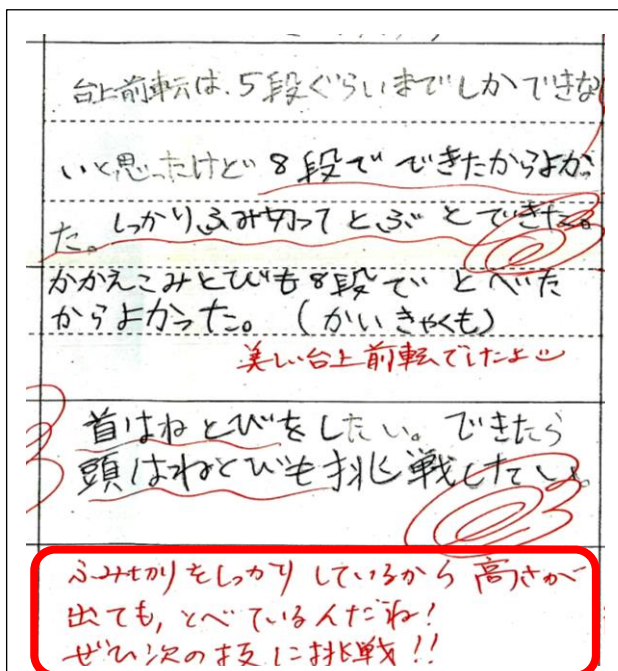 台上前転は、5段ぐらいまでしかできな
いと思ったけど8段でできたからよかっ
た。しっかりふみ切ってとぶとできた。
かかえこみとびも8段でとべた
からよかった。(かいきゃくも)
美しい台上前転でしたよ
首はねとびをしたい。できたら
頭はねとびも挑戦したい。
ふみ切りをしっかりしているから高さが
出ても、とべているんだね!
ぜひ次の技に挑戦!!